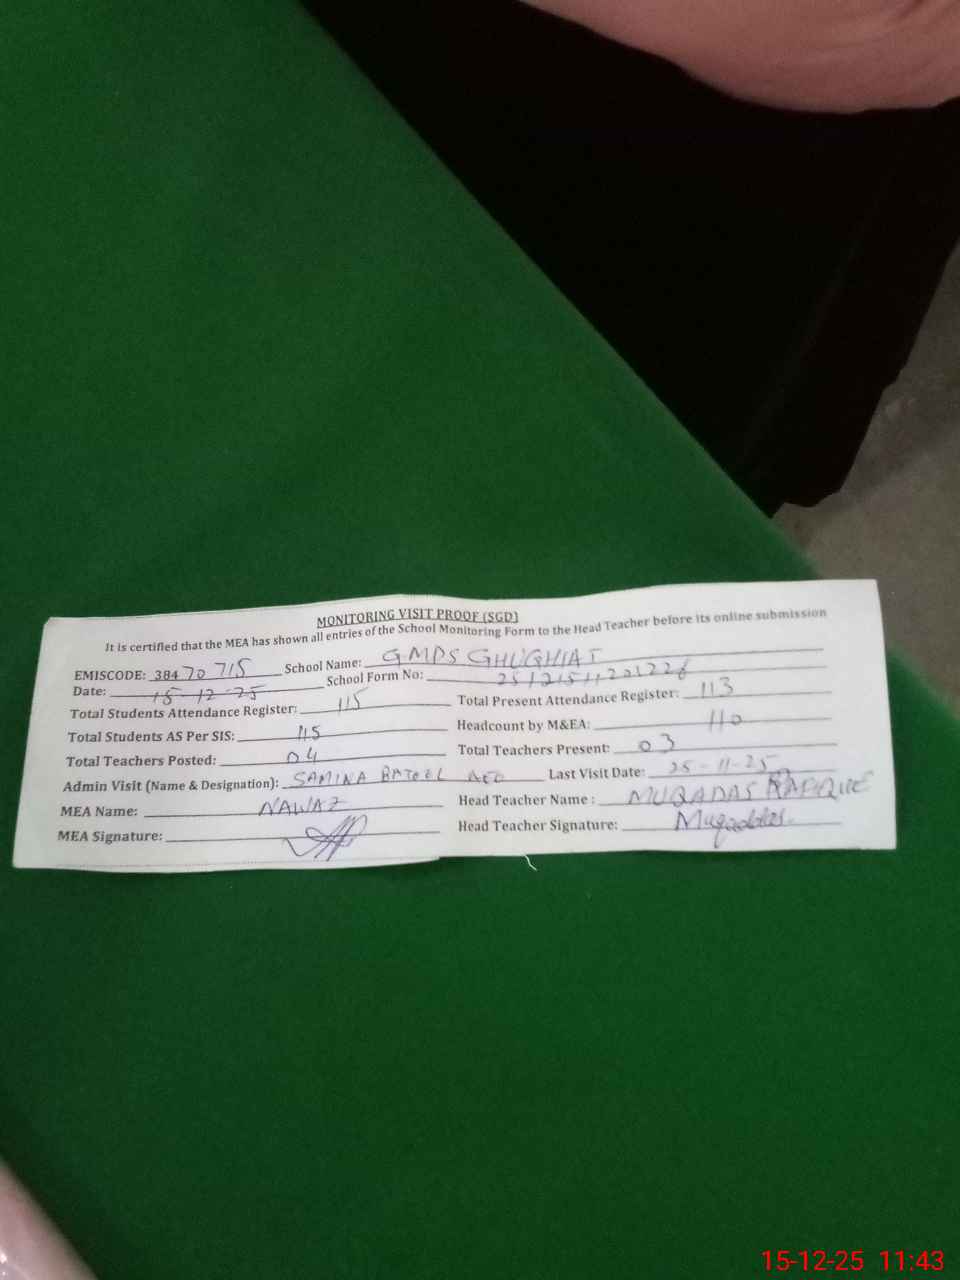 MONITORING VISIT PROOF (SGD)
It is certified that the MEA has shown all entries of the School Monitoring Form to the Head Teacher before its online submission
EMISCODE: 384 70 715 School Name: GMPS GHUGHIAT
Date: 15-12-25 School Form No: 25121511201226
Total Students Attendance Register: 115 Total Present Attendance Register: 113
Total Students AS Per SIS: 115 Headcount by M&EA: 110
Total Teachers Posted: 04 Total Teachers Present: 03
Admin Visit (Name & Designation): SAMINA BATOOL AEO Last Visit Date: 25-11-25
MEA Name: NAWAZ Head Teacher Name : MUQADAS
MEA Signature: Head Teacher Signature: Muqaddas.
15-12-25 11:43